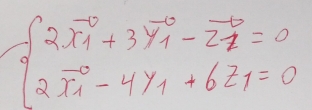 2x⃗1 + 3y⃗1 - z⃗1 = 0
2x⃗1 - 4y1 + 6z1 = 0